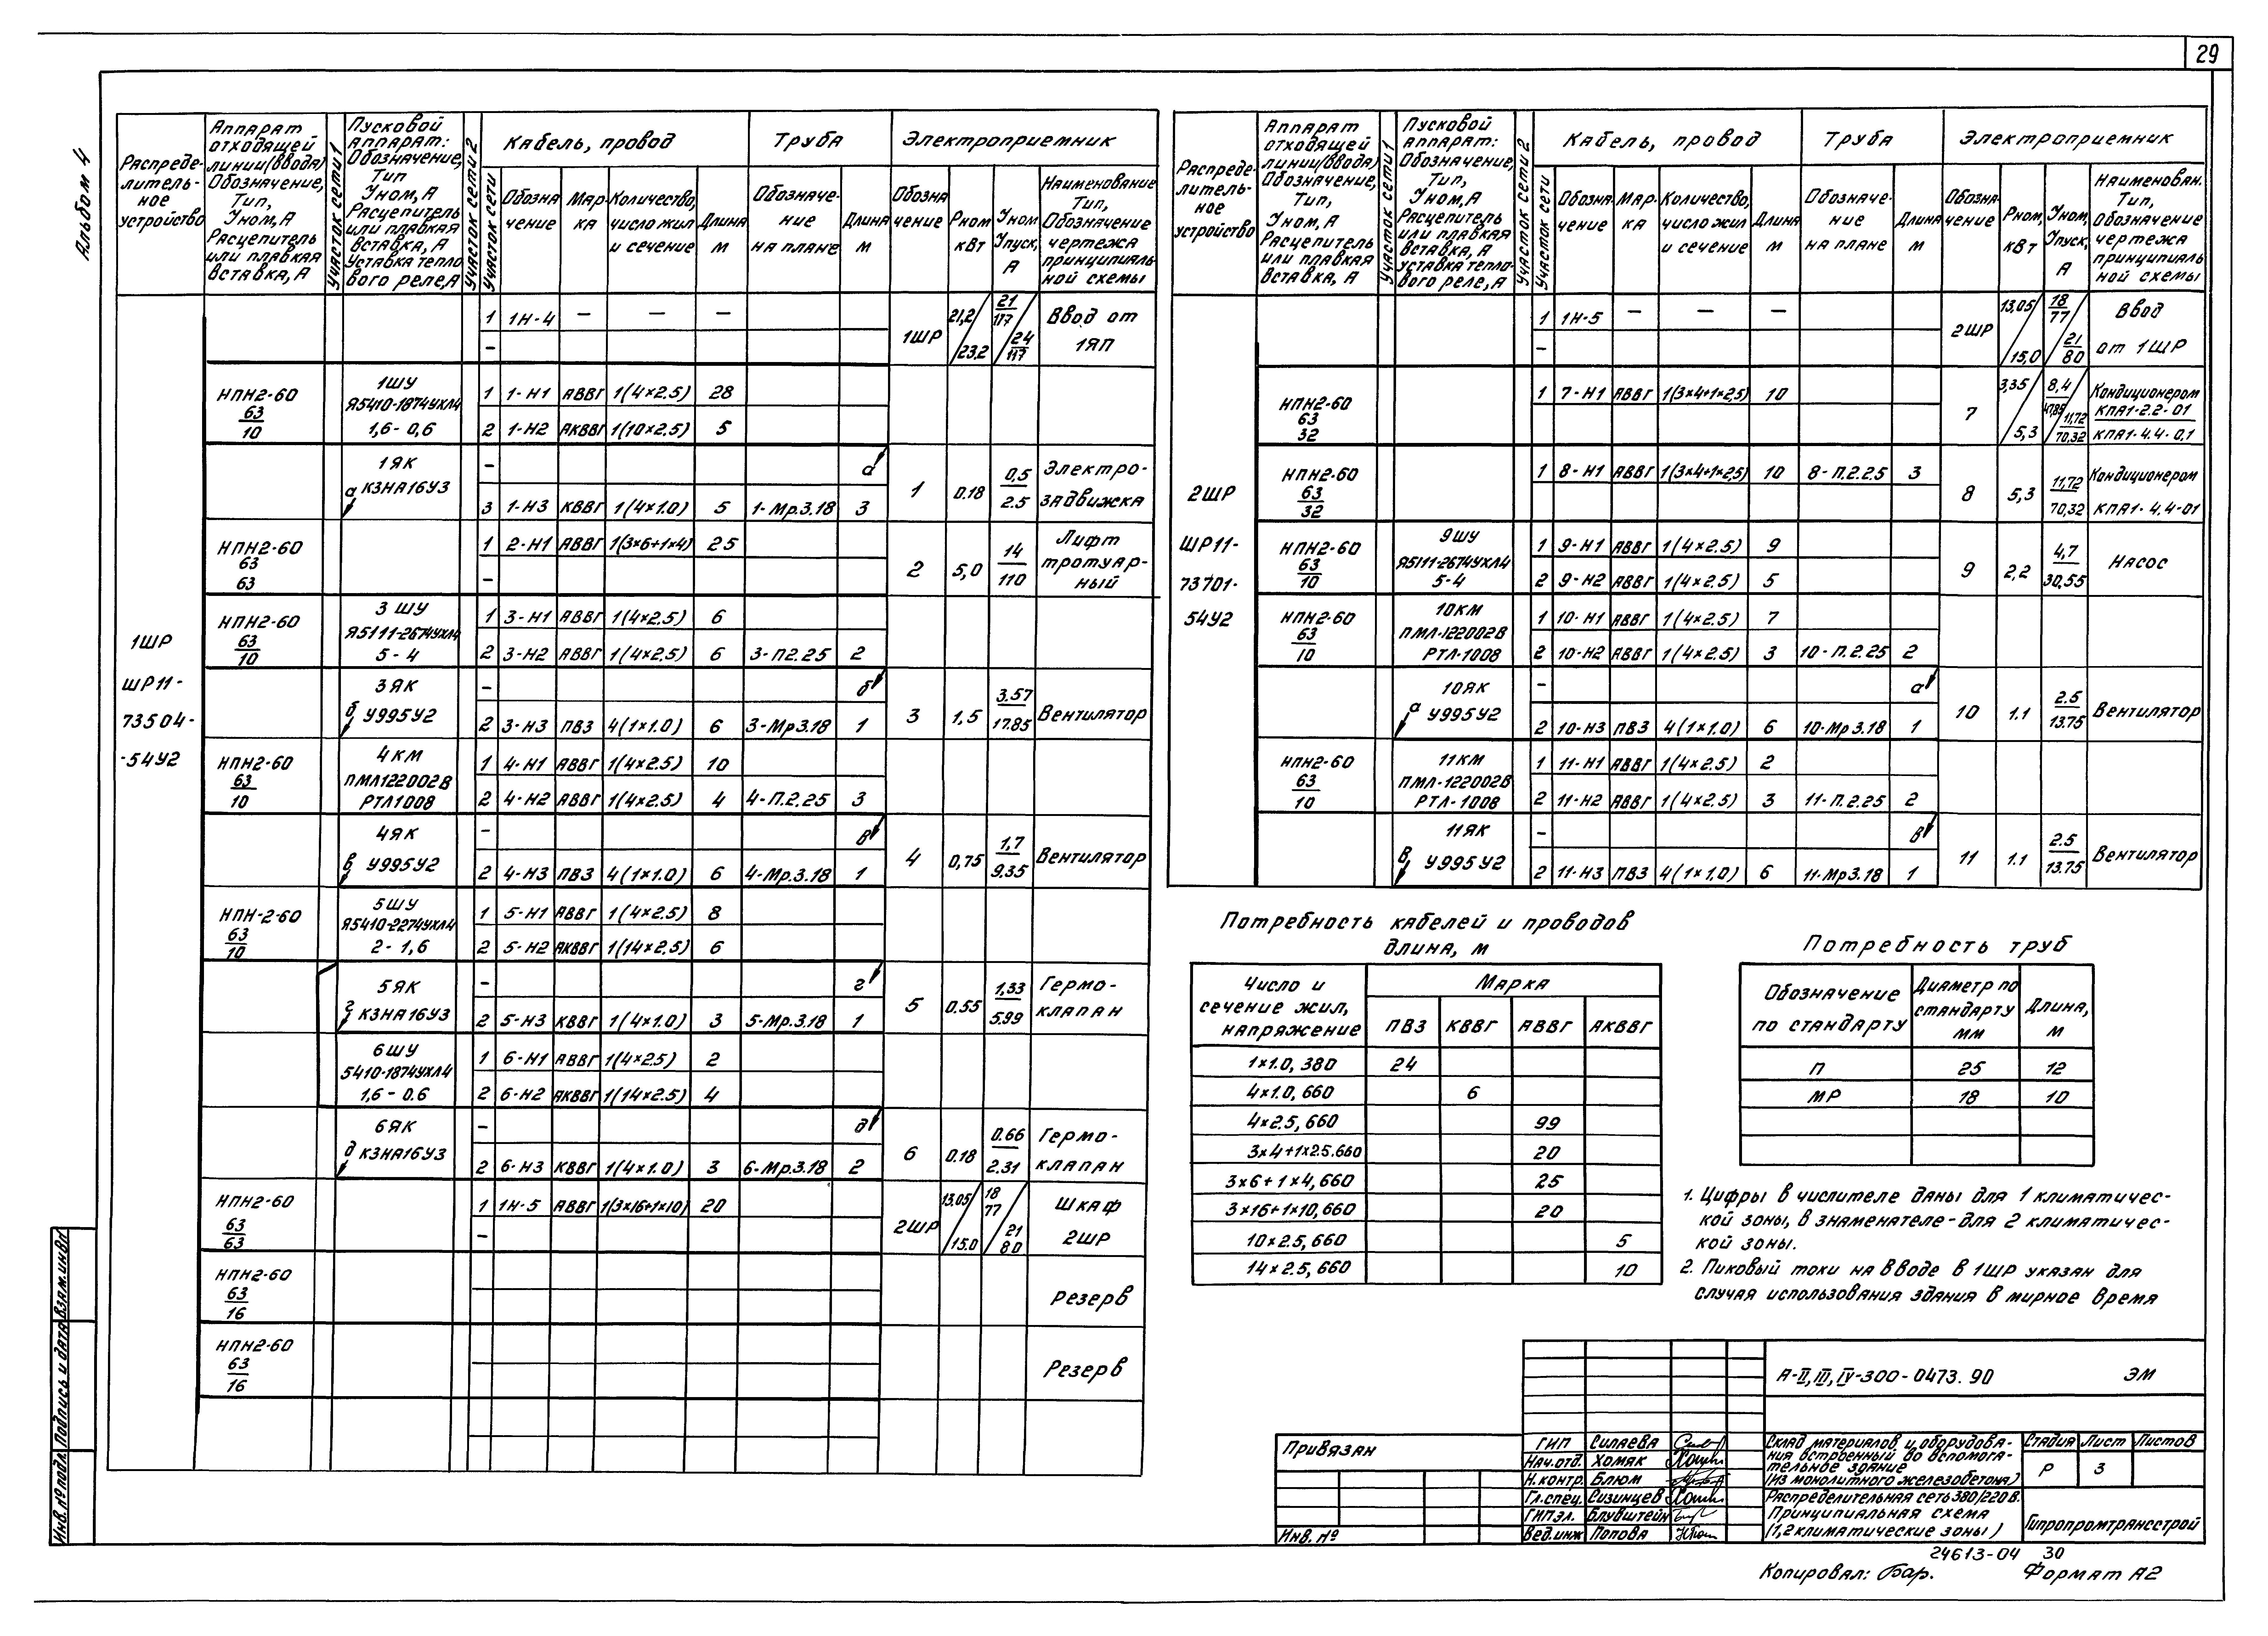 29
Альбом 4
Распределительное устройство
Аппарат отходящей линии (ввода) Обозначение, Тип, Уном, А Расцепитель или плавкая вставка, А
Участок сети 1
Пусковой аппарат: Обозначение, Тип Уном, А Расцепитель или плавкая вставка, А Уставка теплового реле, А
Участок сети 2
Участок сети
Кабель, провод
Обозначение
Марка
Количество, число жил и сечение
Длина м
Труба
Обозначение на плане
Длина м
Электроприемник
Обозначение
Рном кВт
Уном Упуск, А
Наименование Тип, Обозначение чертежа принципиальной схемы
1ШР
ШР11-
73504-
-54У2
1 1Н-4 — — — 1ШР 21,2/23,2 21/117 / 24/117 Ввод от 1ЯП
–
НПН2-60 63/10 1ШУ Я5410-1874УХЛ4 1,6-0,6 1 1-Н1 АВВГ 1(4×2.5) 28
2 1-Н2 АКВВГ 1(10×2.5) 5
1ЯК а КЗНА16У3 – а 1 0.18 0,5/2.5 Электрозадвижка
3 1-Н3 КВВГ 1(4×1.0) 5 1-Мр.3.18 3
НПН2-60 63 63 1 2-Н1 АВВГ 1(3×6+1×4) 25 2 5,0 14/110 Лифт тротуарный
–
НПН2-60 63/10 3ШУ Я5111-2674УХЛ4 5-4 1 3-Н1 АВВГ 1(4×2.5) 6
2 3-Н2 АВВГ 1(4×2.5) 6 3-П2.25 2
3ЯК б У995У2 – б 3 1,5 3.57/17.85 Вентилятор
2 3-Н3 ПВ3 4(1×1.0) 6 3-Мр3.18 1
НПН2-60 63/10 4КМ ПМЛ122002В РТЛ1008 1 4-Н1 АВВГ 1(4×2.5) 10
2 4-Н2 АВВГ 1(4×2.5) 4 4-П.2.25 3
4ЯК в У995У2 – в 4 0,75 1,7/9.35 Вентилятор
2 4-Н3 ПВ3 4(1×1.0) 6 4-Мр.3.18 1
НПН-2-60 63/10 5ШУ Я5410-2274УХЛ4 2-1,6 1 5-Н1 АВВГ 1(4×2.5) 8
2 5-Н2 АКВВГ 1(14×2.5) 6
5ЯК г КЗНА16У3 – г 5 0.55 1,33/5.99 Гермоклапан
2 5-Н3 КВВГ 1(4×1.0) 3 5-Мр.3.18 1
6ШУ 5410-1874УХЛ4 1,6-0.6 1 6-Н1 АВВГ 1(4×2.5) 2
2 6-Н2 АКВВГ 1(14×2.5) 4
6ЯК д КЗНА16У3 – д 6 0.18 0.66/2.31 Гермоклапан
2 6-Н3 КВВГ 1(4×1.0) 3 6-Мр.3.18 2
НПН2-60 63/63 1 1Н-5 АВВГ 1(3×16+1×10) 20 2ШР 13,05/15.0 18 77 / 21 80 Шкаф 2ШР
–
НПН2-60 63/16 Резерв
НПН2-60 63/16 Резерв
Распределительное устройство
Аппарат отходящей линии (ввода) Обозначение, Тип, Уном, А Расцепитель или плавкая вставка, А
Участок сети 1
Пусковой аппарат: Обозначение, Тип, Уном, А Расцепитель или плавкая вставка, А Уставка теплового реле, А
Участок сети 2
Участок сети
Кабель, провод
Обозначение
Марка
Количество, число жил и сечение
Длина м
Труба
Обозначение на плане
Длина м
Электроприемник
Обозначение
Рном, кВт
Уном, Упуск, А
Наименован. Тип, Обозначение чертежа принципиальной схемы
2ШР
ШР11-
73701-
54У2
1 1Н-5 — — — 2ШР 13,05/15,0 18/77 / 21/80 Ввод от 1ШР
–
НПН2-60 63 32 1 7-Н1 АВВГ 1(3×4+1×2,5) 10 7 3,35/5,3 8,4/47,85 / 11,72/70,32 Кондиционером КПА1-2.2-01 КПА1-4.4-0.1
НПН2-60 63/32 1 8-Н1 АВВГ 1(3×4+1×2,5) 10 8-П.2.25 3 8 5,3 11,72/70,32 Кондиционером КПА1-4,4-01
НПН2-60 63/10 9ШУ Я5111-2674УХЛ4 5-4 1 9-Н1 АВВГ 1(4×2.5) 9 9 2,2 4,7/30,55 Насос
2 9-Н2 АВВГ 1(4×2.5) 5
НПН2-60 63/10 10КМ ПМЛ-122002В РТЛ-1008 1 10-Н1 АВВГ 1(4×2.5) 7
2 10-Н2 АВВГ 1(4×2.5) 3 10-П.2.25 2
10ЯК а У995У2 – а 10 1.1 2.5/13.75 Вентилятор
2 10-Н3 ПВ3 4(1×1.0) 6 10-Мр3.18 1
НПН2-60 63/10 11КМ ПМЛ-122002В РТЛ-1008 1 11-Н1 АВВГ 1(4×2.5) 2
2 11-Н2 АВВГ 1(4×2.5) 3 11-П.2.25 2
11ЯК в У995У2 – в 11 1.1 2.5/13.75 Вентилятор
2 11-Н3 ПВ3 4(1×1,0) 6 11-Мр3.18 1
Потребность кабелей и проводов
длина, м
Число и сечение жил, напряжение
Марка
ПВ3 КВВГ АВВГ АКВВГ
1×1.0, 380 24
4×1.0, 660 6
4×2.5, 660 99
3×4+1×2.5.660 20
3×6+1×4, 660 25
3×16+1×10, 660 20
10×2.5, 660 5
14×2.5, 660 10
Потребность труб
Обозначение по стандарту
Диаметр по стандарту мм
Длина, м
П 25 12
МР 18 10
1. Цифры в числителе даны для 1 климатичес-
кой зоны, в знаменателе-для 2 климатичес-
кой зоны.
2. Пиковый токи на вводе в 1ШР указан для
случая использования здания в мирное время
А-II, III, IV-300-0473.90 ЭМ
Привязан
Инв. №
ГИП Силаева
Нач.отд. Хомяк
Н.контр. Блюм
Гл.спец. Сизинцев
ГИПэл. Блувштейн
Вед.инж Попова
Склад материалов и оборудова-
ния встроенный во вспомога-
тельное здание
(из монолитного железобетона)
Стадия Лист Листов
Р 3
Распределительная сеть 380/220 в.
Принципиальная схема
(1,2 климатические зоны)
Гипропромтрансстрой
24613-04 30
Копировал: Бар. Формат А2
Инв. № подл. Подпись и дата Взам. инв. №